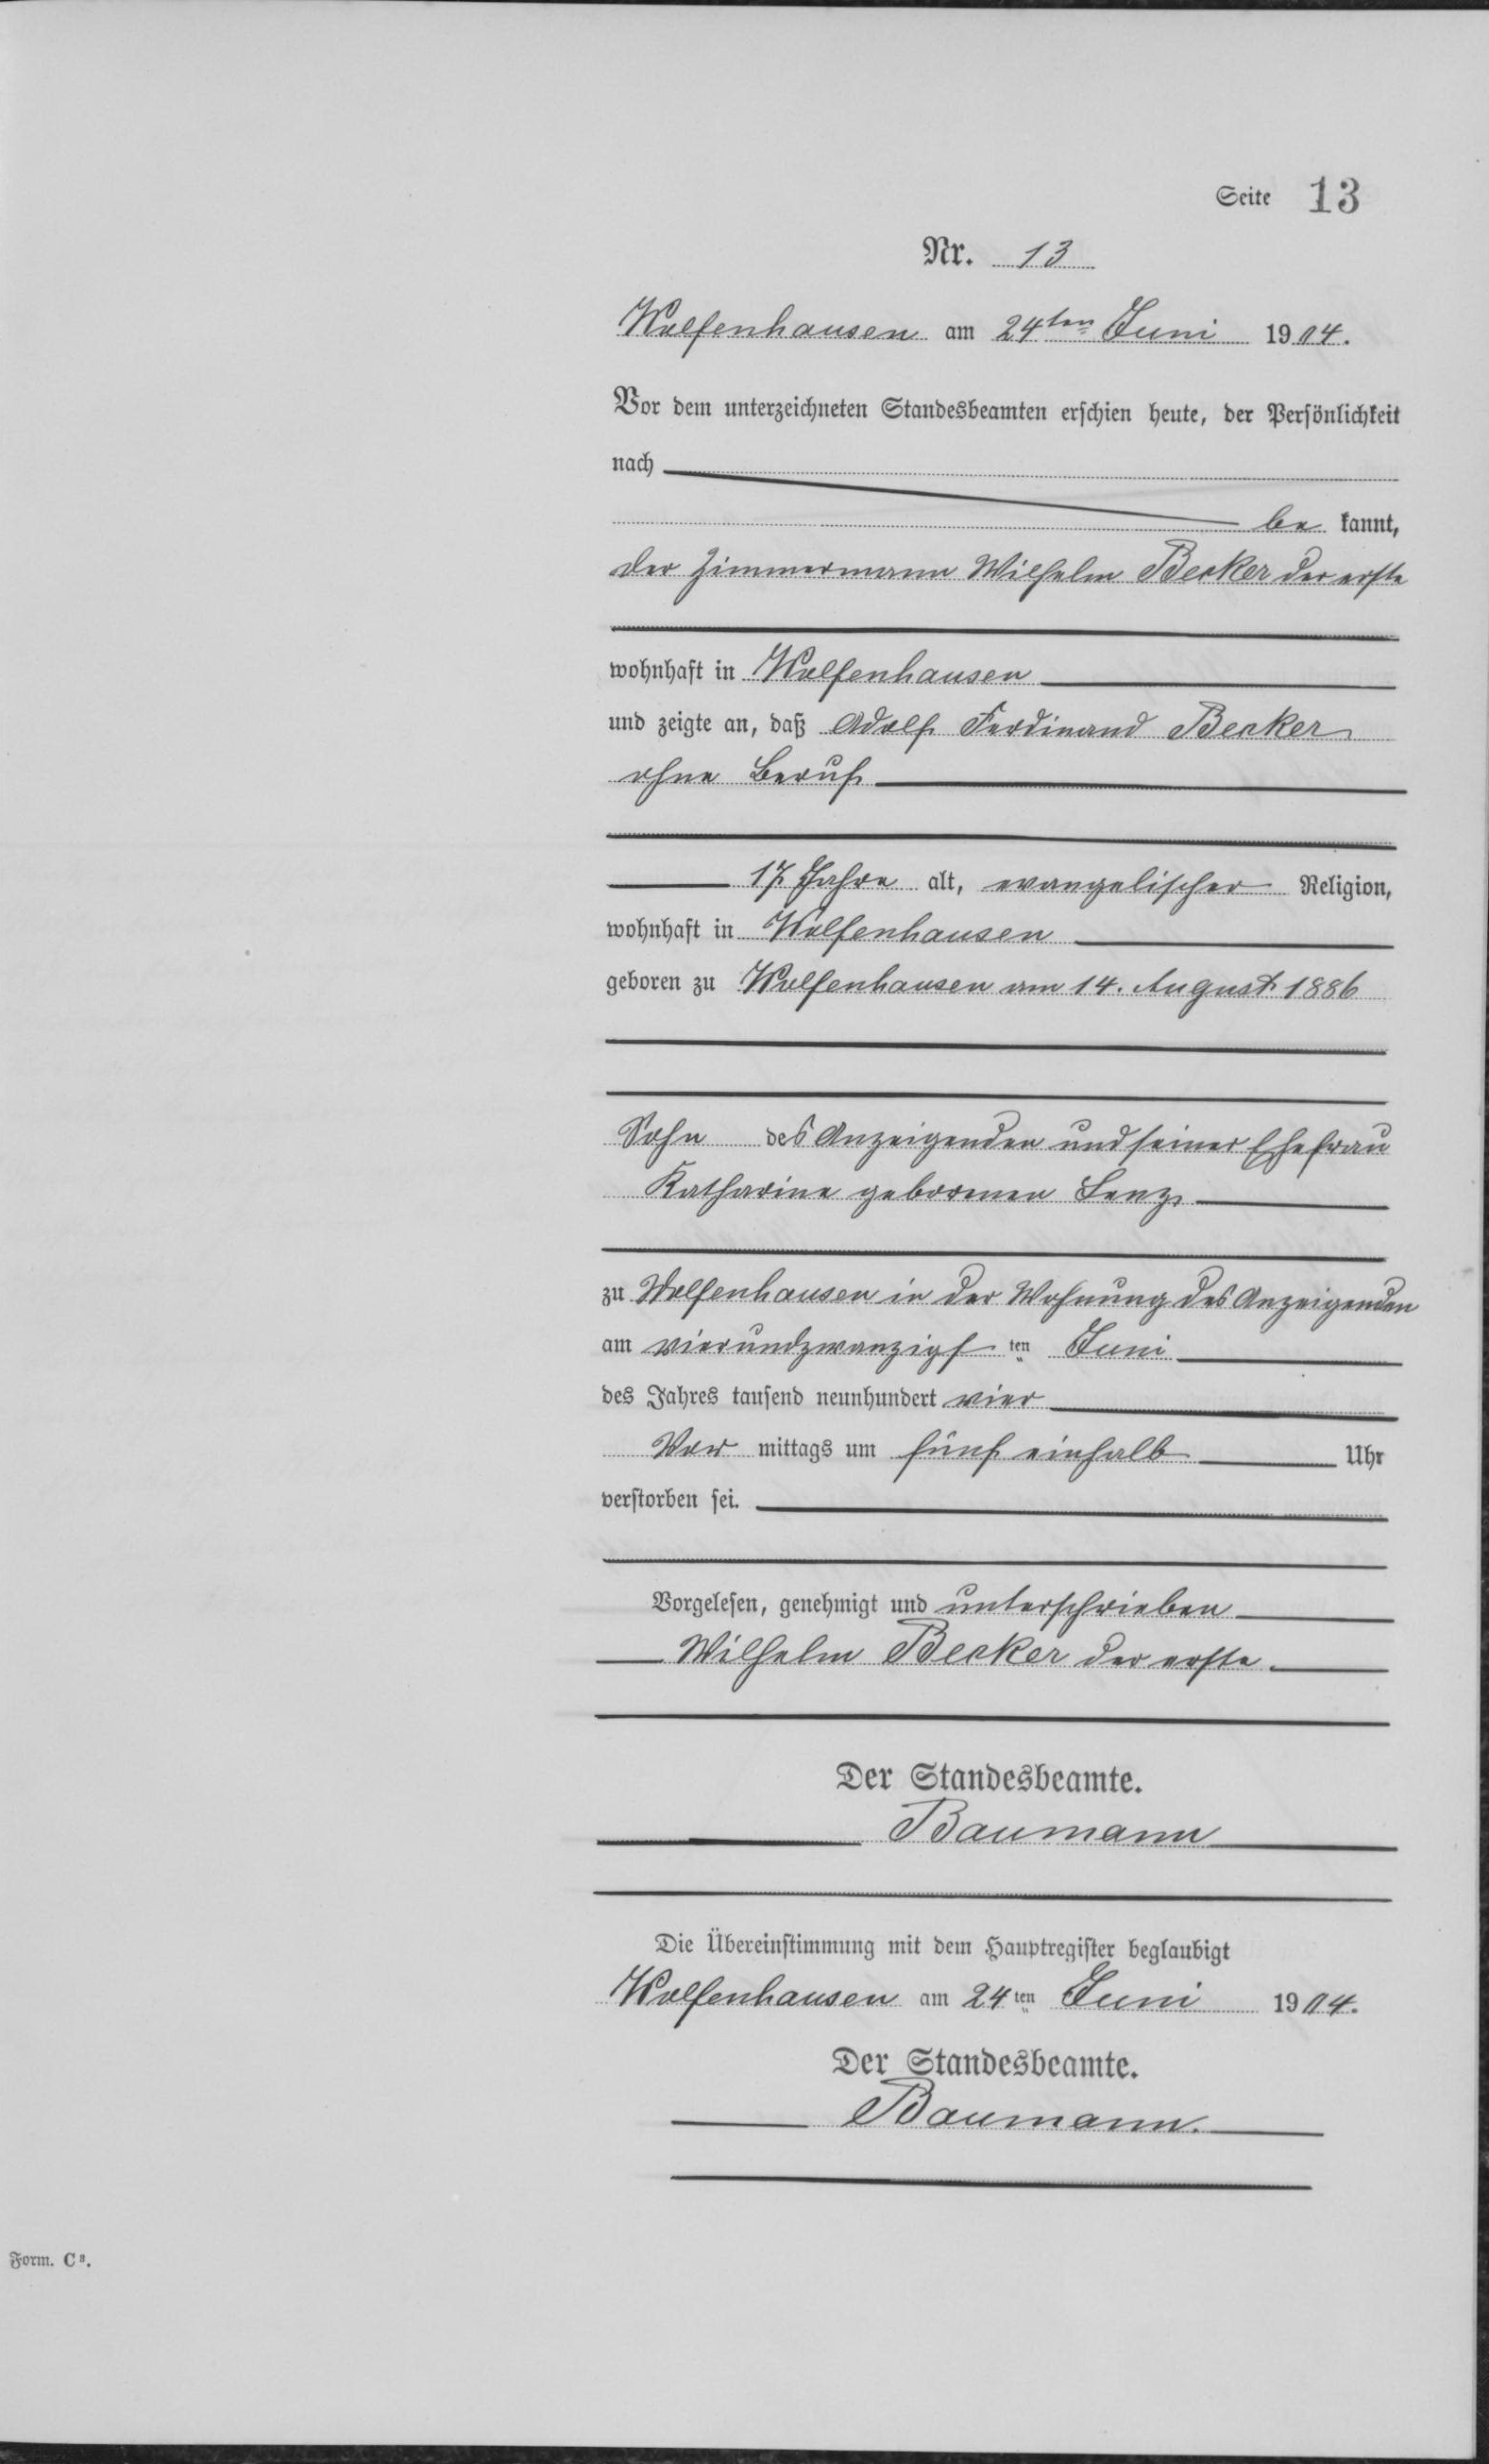 Seite 13
Nr. 13
Wolfenhausen am 24ten Juni 1904.
Vor dem unterzeichneten Standesbeamten erschien heute, der Persönlichkeit
nach
be kannt,
der Zimmermann Wilhelm Becker der erste
wohnhaft in Wolfenhausen
und zeigte an, daß Adolf Ferdinand Becker
ohne Beruf
17 Jahre alt, evangelischer Religion,
wohnhaft in Wolfenhausen
geboren zu Wolfenhausen am 14. August 1886
Sohn des Anzeigenden und seiner Ehefrau
Katharine geborenen Lenz,
zu Wolfenhausen in der Wohnung des Anzeigenden
am vierundzwanzigsten Juni
des Jahres tausend neunhundert vier
Vor mittags um fünf einhalb Uhr
verstorben sei.
Vorgelesen, genehmigt und unterschrieben
Wilhelm Becker der erste.
Der Standesbeamte.
Baumann
Die Übereinstimmung mit dem Hauptregister beglaubigt
Wolfenhausen am 24ten Juni 1904.
Der Standesbeamte.
Baumann.
Form. C³.